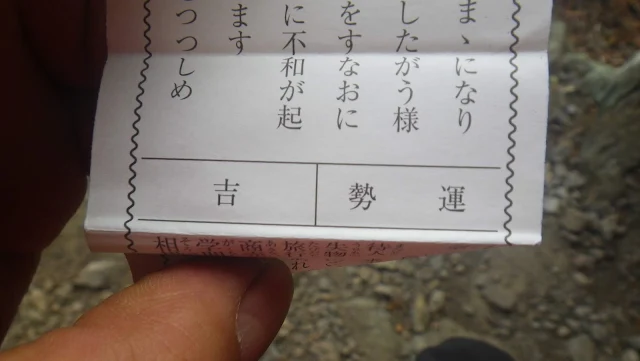 まゝになり
したがう様
をすなおに
に不和が起
ます
つつしめ
運勢
吉